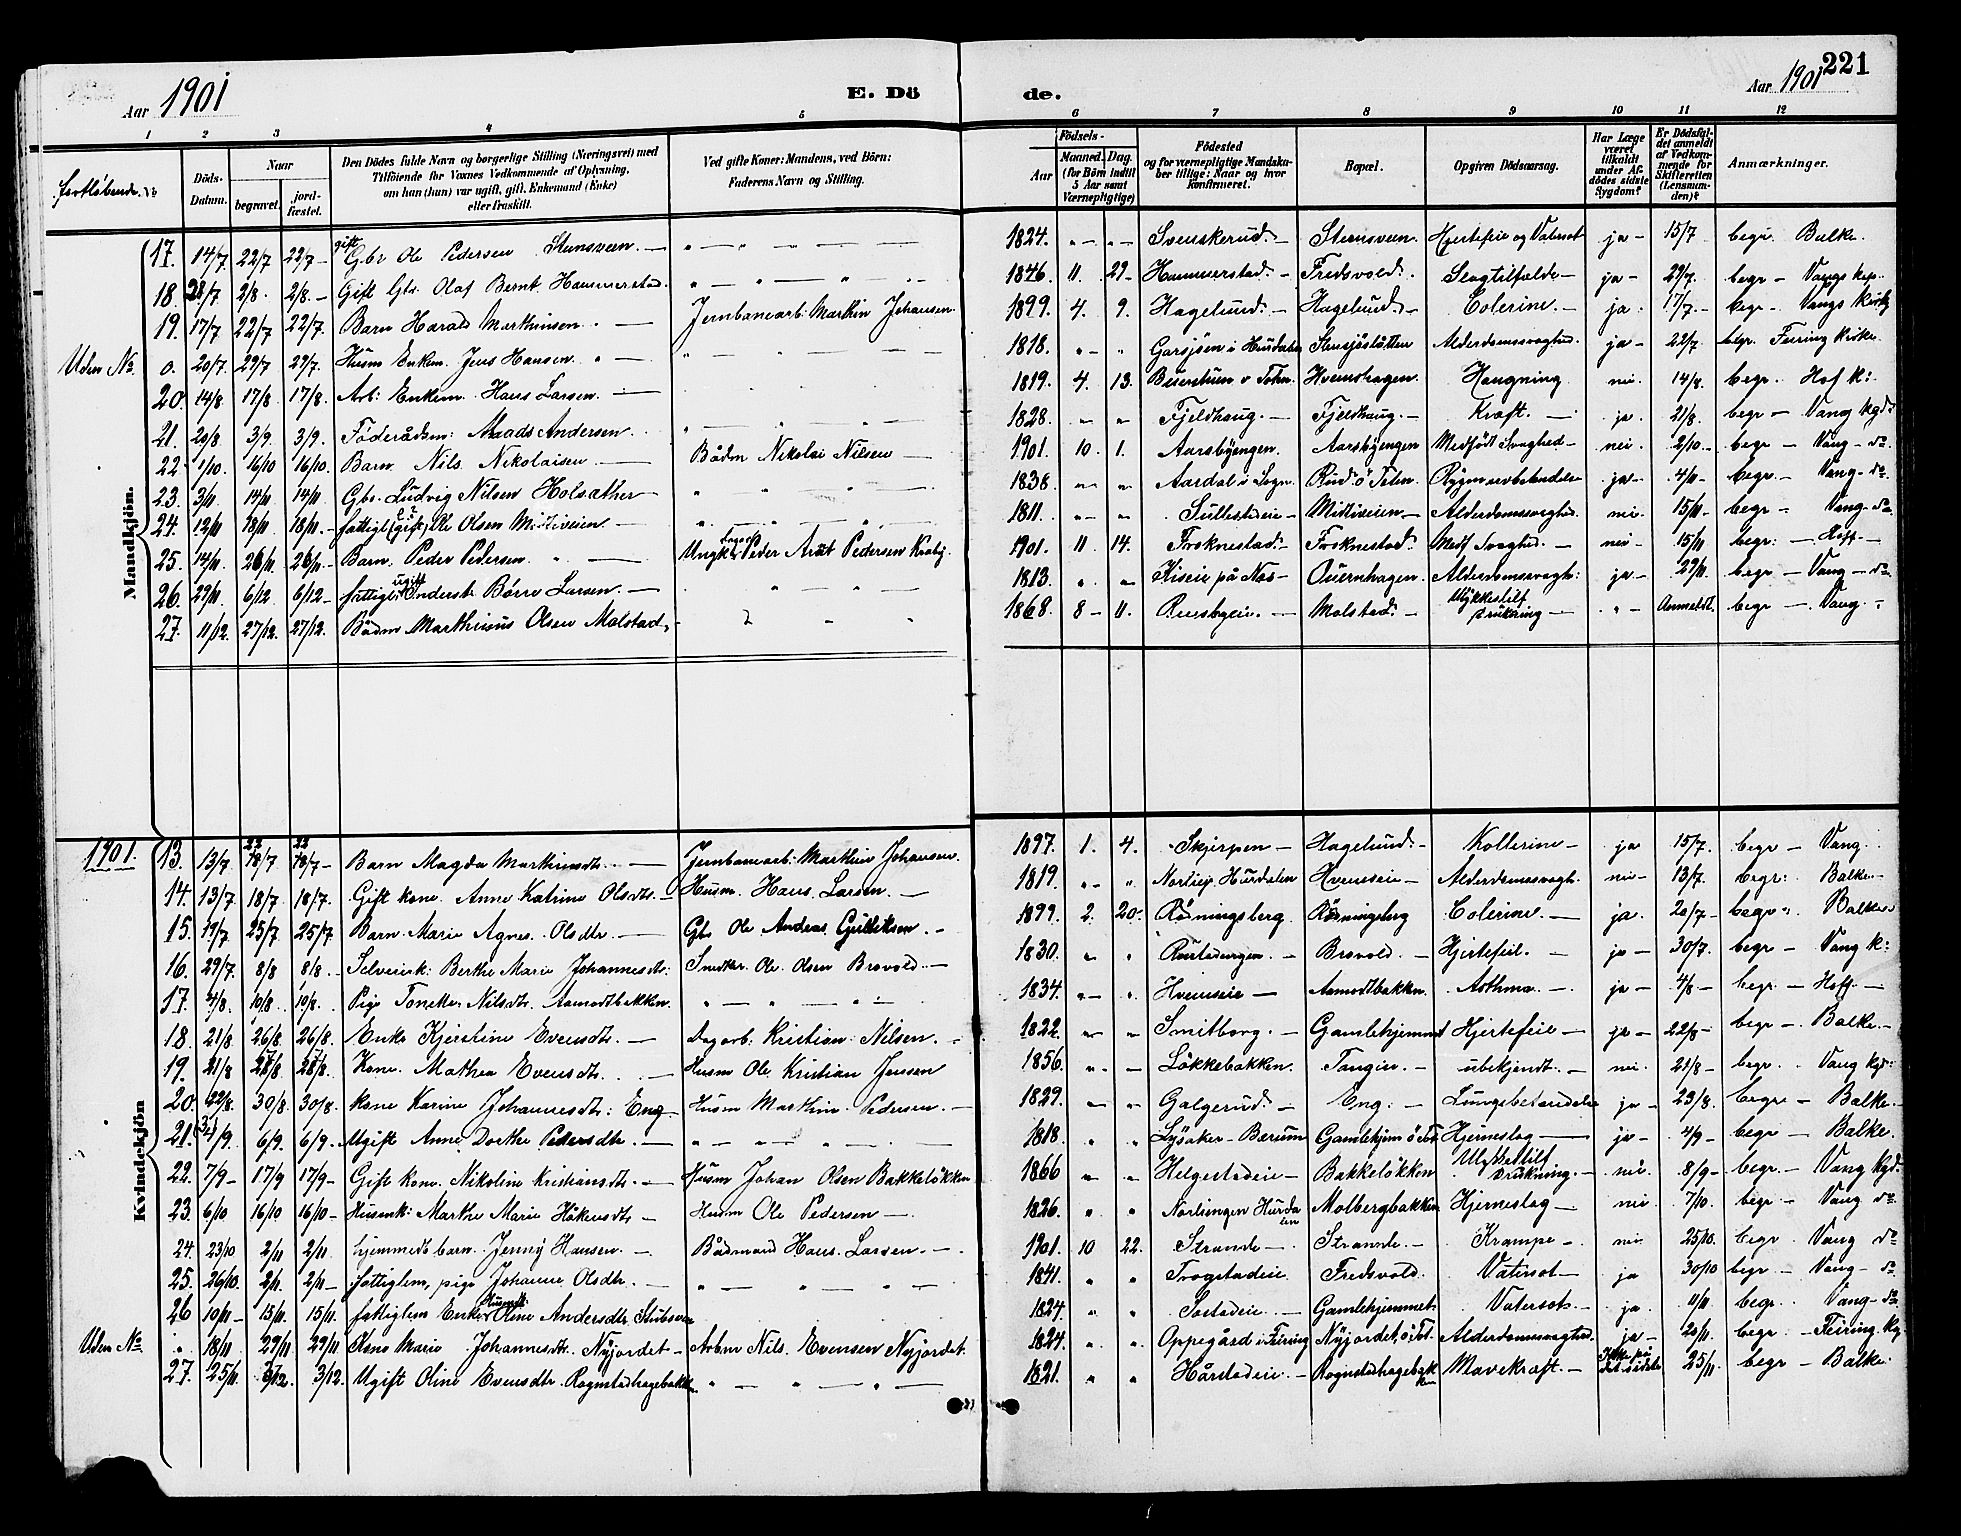 Aar 1901 E. Döde. Aar 1901 221
1 2 3 4 5 6 7 8 9 10 11 12
fortløbende No
Döds-Datum.
Naar begravet. jord-fæstet.
Den Dödes fulde Navn og borgerlige Stilling (Næringsvei) med Tilföiende for Voxnes Vedkommende af Oplysning, om han (hun) var ugift, gift, Enkemand (Enke) eller fraskilt.
Ved gifte Koner: Mandens, ved Börn: Faderens Navn og Stilling.
Födsels-
Aar Maaned. Dag. (for Börn indtil 5 Aar samt Værnepligtige)
Födested og for værnepligtige Mandskaber tillige: Naar og hvor konfirmeret.
Bopæl.
Opgiven Dödsaarsag.
Har Læge været tilkaldt under Afdödes sidste Sygdom?
Er Dödsfaldet anmeldt af Vedkommende for Skifteretten (Lensmanden)?
Anmærkninger.
Mandkjön.
17. 14/7 22/7 22/7 - gift Gbr Ole Pedersen Stensveen. 1824. Svenskerud. Stensveen Hjertefeie og Vatersot ja - 15/7 begr. Balke.
18. 2/8. 2/8. - Gift Gbr. Olaf Bernt. Hammerstad. 1846. 11. 29 - Hammerstad. - Fredsvold. Slagtilfælde - ja - 29/7. begr -
19. 17/7 22/7 22/7. Barn Harald Marthinsen. Jernbanearb: Marthin Johansen. 1899. 4. 9. Hagelund. - Hagelund. - Colerine. - ja. 17/7. - begr - Vangs Kirke
Uden No. 0. 20/7 29/7 29/7. Husm Enkem. Jens Hansen. 1818. Garsjöen i Hurdalen Stensjöslätten Alderdomssvaghed. ja - 22/7. begr. Feiring Kirke.
20. 14/8 17/8 17/8. Arb: Enkem. Hans Larsen. 1819. 4. 13. Hvemshagen. Hængning nei - 14/8. begr. Hof K:
21. 20/8. 3/9. 3/9. Föderådsm: Mads Andersen. 1828. Fjeldhaug. - Fjeldhaug. - Kræft. - ja. 21/8. begr - Vang Kgd
22. 1/10. 16/10 16/10. Barn. Nils. Nikolaisen. Bådm Nikolai Nilsen 1901. 10. 1. Aarsbyengen. Aarsbyengen Medfödt Svaghed - nei. 2/10. - begr - Vang - do
23. 3/11 14/11 14/11. Gbr. Ludvig Nilsen Holsæther 1838. Aardal i Sogn. Rud ö Toten. ja - 4/11 - begr - Vang - do
24. 12/11 18/11 18/11. - fattigl (gift) Ole Olsen Midtiveien 1811. Sullestadeie - Midtiveien - Alderdomssvaghed. nei. 15/11 - begr - Vang - do
25. 14/11. 26/11. 26/11. - Barn. Peder Pedersen Ungk. Peder Arnt Pedersen Kraby. 1901. 11. 14. Froknestad. Froknestad. Medf. Svaghed. - nei - 15/11 begr: - Hoff. -
26. 29/11 6/12 6/12 - fattigl. ugift Anderst Börre Larsen. 1813. Kiseie på Nes - Quernhagen. Alderdomssvagh: ja - 29/11. begr - Vang - do
27. 11/12. 27/12. 27/12. Bådm Marthinus Olsen Molstad. 1868. 8 - 11. Molstad. - Ulykkestilf Drukning - Anmeldt. begr - Vang -
1901. Kvindekjön
13. 13/7 22 18/7 22 18/7 - Barn Magda Marthinsdt. Jernbanearb: Marthin Johansen. 1897. 1. 4. Skjerpen - Hagelund. - Kollerine - ja 15/7. begr - Vang.
14. 13/7 18/7 18/7. Gift kone. Anne Katrine Olsdtr. Husm. Hans. Larsen. 1819. Hurdalen Hvemseie - Alderdomssvagh. nei - 13/7. begr: Balke -
15. 19/7 25/7 25/7 - Barn Marie Agnes. Olsdtr. Gbr Ole Andreas Gulliksen. 1899. 2. 20. Röningsberg Röningsberg Colerine. - ja. 20/7 - begr Balke
16. 29/7. 8/8 8/8. - Selveierk: Berthe Marie Johannesdtr: Snedker. Ole Olsen Brovold. 1830. Brovold. Hjertefeil. ja - 30/7. begr - Vang K:
17. 4/8. 10/8. 10/8. Pige Tonette. Nilsdtr. Aamodtbakken. 1834. Hvemseie - Aamodtbakken. Asthma. - ja - 4/8 - begr. - Hoff. -
18. 21/8. 26/8 26/8. Enke Kjerstine Evensdtr. Dagarb: Kristian Nilsen. 1822. Smitborg. - Gamlehjemmet Hjertefeie - ja - 22/8 - begr -. Balke. -
19. 21/8 28/8. Kone. Mathea Evensdtr. Husm Ole Kristian Jensen 1856. Lökkebakken. Tangien. ubekjendt. - nei. 21/8 - begr. Vang Kgd:
20. 22/8. 30/8 30/8. kone Karine Johannesdtr: Eng Husm Marthin Pedersen. 1829. Galgerud. Eng: Lungebetændelse ja - 23/8. begr - Balke.
21. 3/9. 6/9. 6/9. - Ugift Anne Dorthe Pedersdtr. 1818. Lysaker - Berum Gamlehjem ö Tot. Hjerneslag ja - 4/9 - begr - Balke.
22. 7/9 - 17/9 17/9 - Gift kone. Nikoline Kristiansdtr. Husm Johan Olsen Bakkelökken 1866 Helgestadeie - Bakkelökken Ulykkestilf Drukning. - nei. 8/9 - begr - Vang Kgd
23. 6/10 16/10 16/10 - Husmk: Marthe Marie Håkensdtr Husm Ole Pedersen 1826. Hurdalen Molbergbakken Hjerneslag - nei 7/10. begr - Vang do
24. 23/10 2/11 2/11. hjemmedt barn. Jenny Hansen. Bådmand Hans. Larsen. 1901. 10 22. Strande. Strande. - Krampe - nei 25/10. begr Vang do
25. 26/10. 2/11. 2/11 - fattiglem, pige Johanne Olsdtr. 1841. Trogstadeie. Fredsvold. Vatersot - ja 30/10 begr - Vang - do
26 10/11 - 15/11 15/11. fattiglem Enke Olene Andersdtr. Stubsveen 1824. Sostadeie. Gamlehjemmet Vatersot. - ja. 11/11. begr. Vang - do
Uden No 18/11 29/11 29/11. Kone Marie Johannesdtr. Nyjordet Arbm Nils. Evensen Nyjordet. 1824. Oppegård i Feiring Nyjordet, ö Tot. Alderdomssvaghed. ja - 20/11. begr - Feiring Kg.
27. 25/11 3/12. 3/12. Ugift Oline Evensdtr. Rognstadhagebakken 1821. Hårstadeie. - Rognstadhagebakken Mavekræft. - Ikke på det sidste 25/11 begr - Balke.